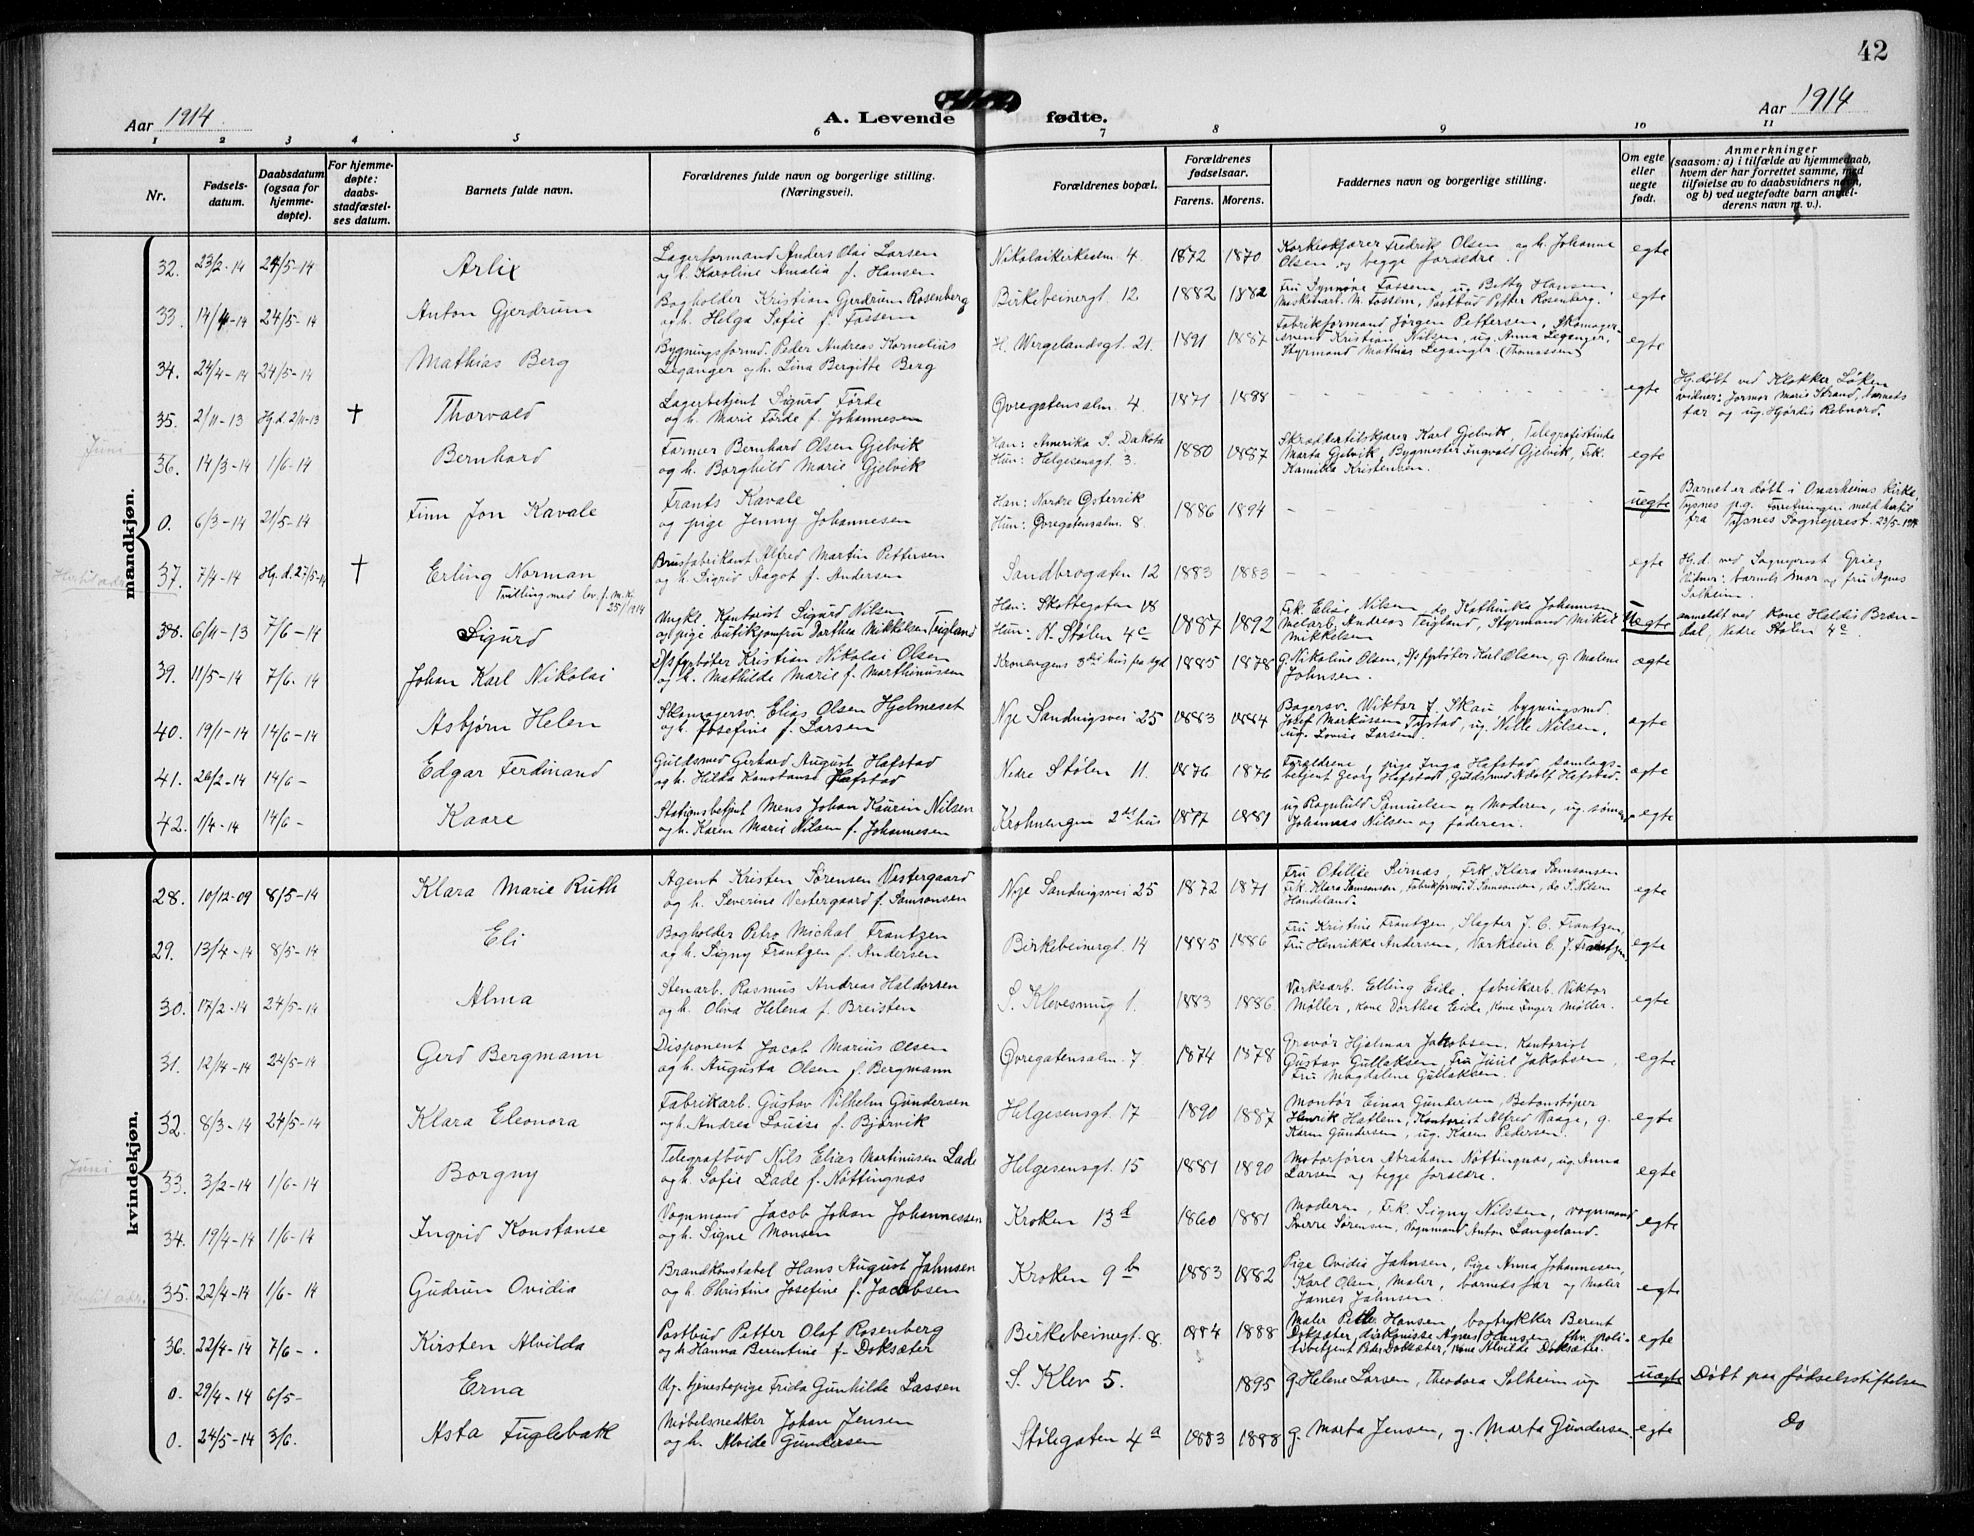 42
Aar 1914
A. Levende fødte.
Aar 1914
1 2 3 4 5 6 7 8 9 10 11
Nr.
Fødsels-
datum.
Daabsdatum
(ogsaa for
hjemme-
døpte).
For hjemme-
døpte:
daabs-
stadfæstel-
ses datum.
Barnets fulde navn.
Forældrenes fulde navn og borgerlige stilling.
(Næringsvei).
Forældrenes bopæl.
Forældrenes
fødselsaar.
Farens. Morens.
Faddernes navn og borgerlige stilling.
Om egte
eller
uegte
født.
Anmerkninger
(saasom: a) i tilfælde av hjemmedaab,
hvem der har forrettet samme, med
tilføielse av to daabsvidners navn,
og b) ved uegtefødte barn anmel-
derens navn m. v.).
mandkjøn.
32. 23/2-14 24/5-14 Arlix
Lagerformand Anders Olai Larsen
og h. Karoline Amalia f. Hansen
Nikolaikirkealm. 4. 1872 1870
Fredrik Olsen og h. Johanne
Olsen og begge forældre.
egte
33. 14/4-14 24/5-14 Anton Gjerdrum
Bogholder Kristian Gjerdrum Rosenberg
og h. Helga Sofie f. Fossem
Birkebeinergt. 12 1882 1882
Fru Synnøve Fossem, ug. Betty Hansen,
Maskinarb. M. Fossem, Postbud Petter Rosenberg.
egte
34. 24/4-14 24/5-14 Mathias Berg
Bygningsformd. Peder Andreas Kornelius
Leganger og h. Lina Bergitte Berg
H. Wergelandsgt. 21. 1891 1887
Fabrikformand Jørgen Pettersen, Skomager-
svend Kristian Nilsen, ug. Anna Leganger,
Styrmand Mathias Leganger (Thomassen)
egte
35. 2/11-13 Hj.d. 2/11-13 † Thorvald
Lagerbetjent Sigurd Førde
og h. Marie Førde f. Johannesen
Øvregatensalm. 4. 1871 1888
egte
Hj.døbt ved Klokker Løken
vidner: Jormor Marie Strand, barnets
far og ug. Hjørdis Rebnord.
Juni
36. 14/3-14 1/6-14 Bernhard
Farmer Bernhard Olsen Gjelvik
og h. Borghild Marie Gjelvik
Han: Amerika S. Dakota
Hun: Helgesensgt. 3. 1880 1887
Skrædertilskjærer Karl Gjelvik, Telegrafistinde
Marta Gjelvik, Bygmester Ingvald Gjelvik, Frk.
Kamilla Kristensen.
egte
0. 6/3-14 21/5-14 Finn Jon Kavale
Frants Kavale
og pige Jenny Johannesen
Han: Nordre Østerrik
Hun: Øvregatensalm. 8. 1886 1894
uegte
Barnet er døbt i Onarheims kirke,
Tysnes p.g. Forretningen meld. hertil
fra Tysnes Sogneprest 23/5-1914
37. 7/4-14 Hj.d. 27/5-14 † Erling Norman
Tvilling med lev. f. m.k.
Brusfabrikant Alfred Martin Pettersen
og h. Sigrid Aagot f. Andersen
Sandbrogaten 12 1883 1883
egte
Hj.d. ved Sogneprest Grieg
Vidner: barnets mor og fru Agnes
Solheim.
38. 6/11-13 7/6-14 Sigurd
Ungkl. Kontorist Sigurd Nilsen
og pige butikjomfru Dorthea Mikkelsen Teigland
Han: Skottegaten 18
Hun: N. Stølen 4c 1887 1892
Frk. Elise Nilsen, do Kathinka Johannesen
Melarb. Andreas Teigland, Styrmand Mikkel
Mikkelsen
Uegte
anmeldt ved kone Haldis Bran-
dal, Nedre Stølen 4c.
39. 11/5-14 7/6-14 Johan Karl Nikolai
D/s fyrbøter Kristian Nikolai Olsen
og h. Mathilde Marie f. Marthinussen
Kronengens 3die hus fra syd 1885 1878
g. Nikoline Olsen, D/s fyrbøter Karl Olsen, g. Malene
Johnsen.
egte
40. 19/1-14 14/6-14 Asbjørn Helen
Skomagersv. Elias Olsen Hjelmeset
og h. Josefine f. Larsen
Nye Sandvigsvei 25 1883 1884
Bagersv. Wiktor J. Skau bygningsmd.
Josef Markussen Tystad, ug. Nille Nilsen,
ug. Lovise Larsen.
egte
41. 26/2-14 14/6- Edgar Ferdinand
Guldsmed Gerhard August Hafstad
og h. Hilda Konstanse Hafstad
Nedre Stølen 11. 1876 1876
Forældrene, pige Inga Hafstad, samlags-
betjent Georg Hafstad, Guldsmed Adolf Hafstad.
egte
42. 1/4-14 14/6- Kaare
Stationsbetjent Mens Johan Kaurin Nilsen
og h. Karen Marie Nilsen f. Johannesen
Krohnengen 2det hus 1877 1881
ug Ragnhild Samuelsen og Moderen, ug. sømand
Johannes Nilsen og faderen.
egte
kvindekjøn.
28. 10/12-09 8/5-14 Klara Marie Ruth
Agent Kristen Sørensen Vestergaard
og h. Severine Vestergaard f. Samsonsen
Nye Sandvigsvei 25 1872 1871
Fru Otillie Sirnæs, Frk. Klara Samsonsen
Frk. Klara Samsonsen, Fabrikformd. J. Samsonsen, do S. Nilsen
Handeland.
egte
29. 13/4-14 8/5-14 Eli
Bogholder Petro Michal Frantzen
og h. Signy Frantzen f. Andersen
Birkebeinergt. 14 1885 1886
Fru Kristine Frantzen, Slagter J. C. Frantzen,
Fru Henrikke Andersen, Værkseier C. J. Frantzen.
egte
30. 17/2-14 24/5-14 Alma
Stenarb. Rasmus Andreas Haldorsen
og h. Oliva Helena f. Breisten
S. Klevesmug 1. 1883 1886
Verksarb. Elling Eide, fabrikarb. Viktor
Møller, Kone Dorthea Eide, Kone Inger Møller.
egte
31. 12/4-14 24/5-14 Gerd Bergmann
Disponent Jacob Marius Olsen
og h. Augusta Olsen f. Bergmann
Øvregatensalm. 7 1874 1878
Gravør Hjelmar Jakobsen, Kontorist
Gustav Gullaksen, Fru Juul Jakobsen,
Fru Magdalene Gullaksen.
egte
32. 8/3-14 24/5-14 Klara Eleonora
Fabrikarb. Gustav Vilhelm Gundersen
og h. Andrea Louise f. Bjørvik
Helgesensgt. 17 1890 1887
Montør Einar Gundersen, Betonstøper
Henrik Hatlem, Kontorist Alfred Vaage, g.
Karen Gundersen, ug. Karen Pedersen.
egte
Juni
33. 3/2-14 1/6-14 Borgny
Telegrafbud Nils Elias Martinusen Lade
og h. Sofie Lade f. Nøttingnæs
Helgesensgt. 15 1881 1890
Motorfører Abraham Nøttingnæs, ug. Anna
Larsen og begge forældre.
egte
34. 19/4-14 1/6-14 Ingrid Konstanse
Vognmand Jacob Johan Johannessen
og h. Signe Monsen
Kroken 13d 1860 1881
Moderen, Frk. Signy Nilssen, vognmand
Sverre Sørensen, Vognmand Anton Langeland.
egte
35. 22/4-14 1/6-14 Gudrun Ovidia
Brandkonstabel Hans August Jahnsen
og h. Christine Josefine f. Jacobsen
Kroken 9b 1883 1882
Pige Ovidia Jahnsen, Pige Anna Johannesen,
Karl Olsen, Maler, barnets far og Maler
James Jahnsen.
egte
36. 22/4-14 7/6- Kirsten Alvilda
Postbud Petter Olaf Rosenberg
og h. Hanna Berentine f. Doksæter
Birkebeinergt. 8 1884 1888
Maler Peder Hansen, bogtrykker Berent
Doksæter, diakonisse Agnes Hansen, fhv. poli-
tibetjent Peter Doksæter, Kone Alvilde Doksæter.
egte
0. 29/4-14 6/5- Erna
Ug. tjenestepige Frida Gunhilde Lassen
S. Klev 5. 1895
g. Helene Larsen, Theodora Solheim ug
uegte
Døbt paa fødselsstiftelsen
0. 24/5-14 3/6. Asta Fuglebak
Møbelsnedker Johan Jensen
og h. Alvide Gundersen
Stølegaten 4a 1883 1888
g. Marta Jensen, g. Marta Gundersen.
egte
do